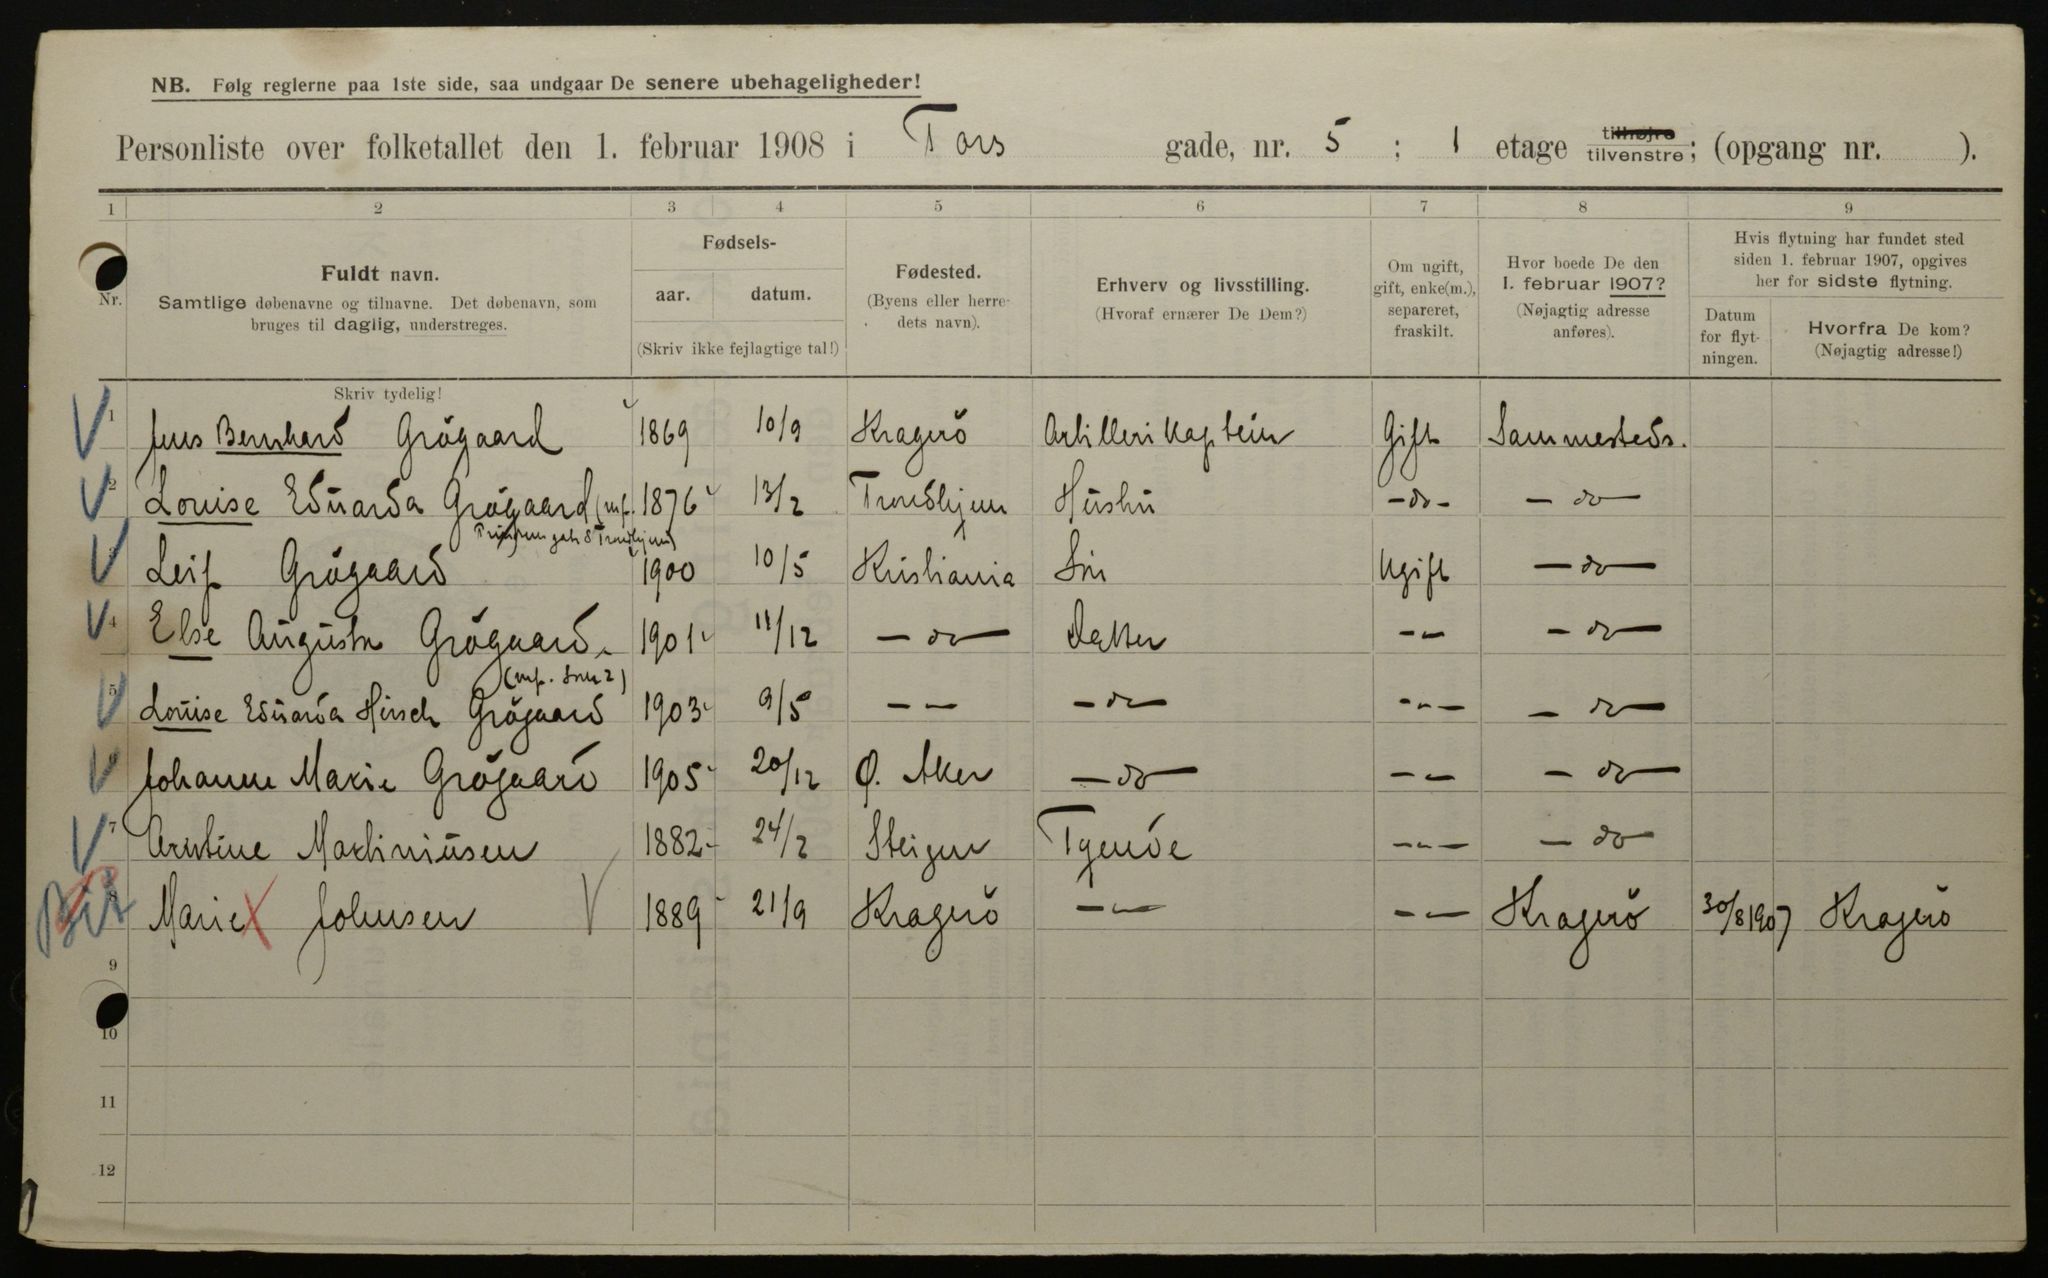 NB. Følg reglerne paa 1ste side, saa undgaar De senere ubehageligheder!
Personliste over folketallet den 1. februar 1908 i Tors gade, nr. 5 ; 1 etage tilhøjre tilvenstre; (opgang nr. ).
1 2 3 4 5 6 7 8 9
Nr.
Fuldt navn.
Samtlige døbenavne og tilnavne. Det døbenavn, som
bruges til daglig, understreges.
Fødsels-
aar. datum.
(Skriv ikke fejlagtige tal!)
Fødested.
(Byens eller herre-
dets navn).
Erhverv og livsstilling.
(Hvoraf ernærer De Dem?)
Om ugift,
gift, enke(m.),
separeret,
fraskilt.
Hvor boede De den
1. februar 1907?
(Nøjagtig adresse
anføres).
Hvis flytning har fundet sted
siden 1. februar 1907, opgives
her for sidste flytning.
Datum
for flyt-
ningen.
Hvorfra De kom?
(Nøjagtig adresse!)
Skriv tydelig!
1 Jens Bernhard Grögaard 1869 10/9 Kragerö Artillerikaptein Gift Sammesteds.
2 Louise Eduarda Grögaard 1876 13/2 Trondhjem Hustru -do- - do
3 Leif Grögaard 1900 10/5 Kristiania Sön Ugift - do -
4 Else Augusta Grögaard. 1901 11/12 - do - Datter - " - - do -
5 Louise Eduarda Hirsch Grögaard 1903 9/5 - - - do - - " - - do -
6 Johanne Marie Grögaard 1905 20/12 Ø. Aker - do - - - - do -
7 Arntine Martiniusen 1882 24/2 Steigen Tjende - " - - do -
8 Marie X Johnsen V 1889 21/9 Kragerö - " - - - Kragerö 30/8 1907 Kragerö
9
10
11
12